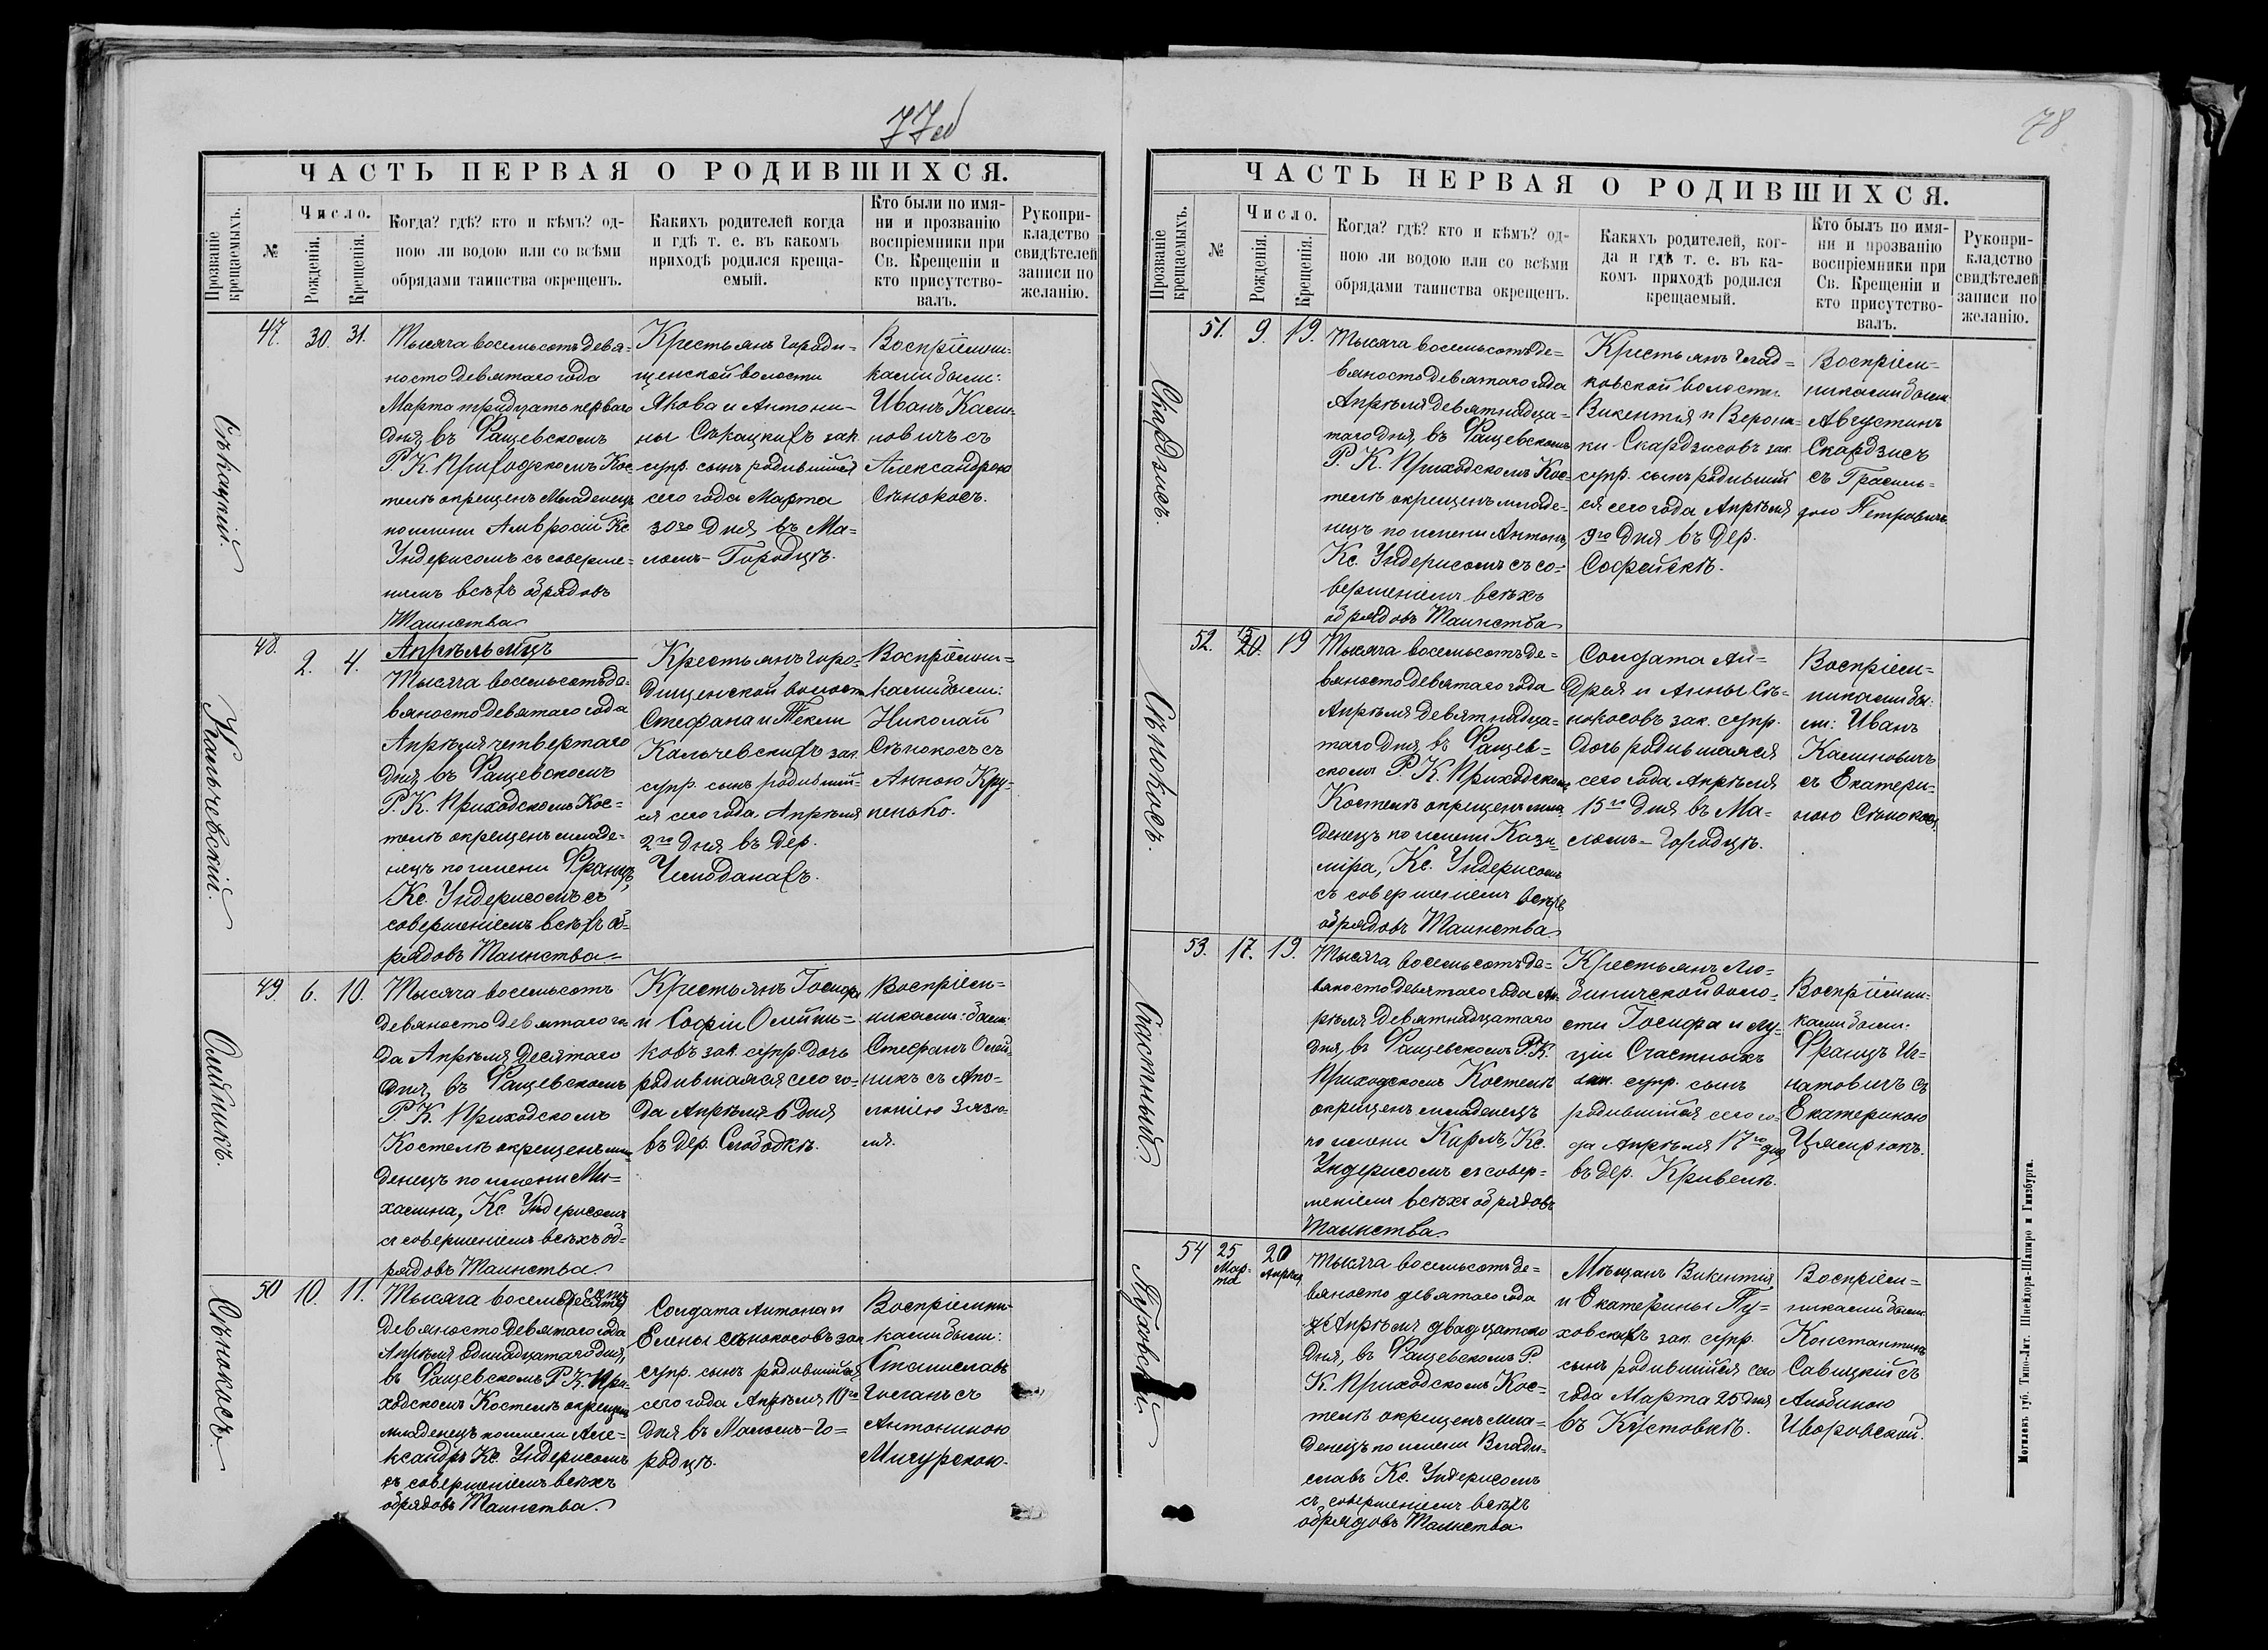 77об
ЧАСТЬ ПЕРВАЯ О РОДИВШИХСЯ.
Прозваніе крещаемыхъ.
№
Число.
Рожденія.
Крещенія.
Когда? гдѣ? кто и кѣмъ? од-
ною ли водою или со всѣми
обрядами таинства окрещенъ.
Какихъ родителей когда
и гдѣ т. е. въ какомъ
приходѣ родился креща-
емый.
Кто были по имя-
ни и прозванію
воспріемники при
Св. Крещеніи и
кто присутство-
валъ.
Рукопри-
кладство
свидѣтелей
записи по
желанію.
Сѣкацкій.
47.
30.
31.
Тысяча восемьсотъ девя-
носто девятаго года
Марта тридцать перваго
дня, въ Фащевскомъ
Р. К. Приходскомъ Кос-
телѣ окрещенъ младенецъ
по имени Амвросій Кс.
Ундерисомъ съ соверше-
ніемъ всѣхъ обрядовъ
Таинства
Крестьянъ Городи-
щенской волости
Якова и Антони-
ны Сѣкацкихъ зак.
супр. сынъ родившійся
сего года Марта
30го дня въ Ма-
ломъ-Городцѣ.
Воспріемни-
ками были:
Иванъ Касин-
новичъ съ
Александрою
Сѣнокосъ.
Кальчевскій.
48.
2.
4.
Апрѣль мѣцъ
Тысяча восемьсотъ де-
вяносто девятаго года
Апрѣля четвертаго
дня, въ Фащевскомъ
Р. К. Приходскомъ Кос-
телѣ окрещенъ младе-
нецъ по имени Францъ,
Кс. Ундерисомъ съ
совершеніемъ всѣхъ об-
рядовъ Таинства
Крестьянъ Горо-
дищенской волости
Стефана и Текли
Кальчевскихъ зак.
супр. сынъ родивший-
ся сего года Апрѣля
2го дня въ дер.
Чемоданахъ.
Воспріемни-
ками были:
Николай
Сѣнокосъ съ
Анною Кру-
пенько.
Олейникъ.
49.
6.
10.
Тысяча восемьсотъ
девяносто девятаго го-
да Апрѣля десятаго
дня, въ Фащевскомъ
Р. К. Приходскомъ
Костелѣ окрещенъ мла-
денецъ по имени Ми-
халина, Кс. Ундерисомъ
съ совершеніемъ всѣхъ об-
рядовъ Таинства.
Крестьянъ Іосифа
и Софіи Олейни-
ковъ зак. супр. дочь
родившаяся сего го-
да Апрѣля 6 дня
въ дер. Слободкѣ.
Воспріем-
никами: были:
Стефанъ Олей-
никъ съ Апо-
лоніею Зязю-
ля.
Сѣнокосъ.
50
10.
11.
Тысяча восемьсотъ
девяносто девятаго года
Апрѣля одинадцатаго дня,
въ Фащевскомъ Р. К. При-
ходскомъ Костелѣ окрещенъ
младенецъ по имени Але-
ксандръ Кс. Ундерисомъ
съ совершеніемъ всѣхъ
обрядовъ Таинства.
Солдата Антона и
Елены Сѣнокосовъ зак.
супр. сынъ родившійся
сего года Апрѣля 10го
дня въ Маломъ-Го-
родцѣ.
Воспріемни-
ками были:
Станиславъ
съ
Антониною
Мигурскою.
78
ЧАСТЬ ПЕРВАЯ О РОДИВШИХСЯ.
Прозваніе крещаемыхъ.
№
Число.
Рожденія.
Крещенія.
Когда? гдѣ? кто и кѣмъ? од-
ною ли водою или со всѣми
обрядами таинства окрещенъ.
Какихъ родителей, ког-
да и гдѣ т. е. въ ка-
комъ приходѣ родился
крещаемый.
Кто былъ по имя-
ни и прозванію
воспріемники при
Св. Крещеніи и
кто присутство-
валъ.
Рукопри-
кладство
свидѣтелей
записи по
желанію.
Скардзисъ.
51.
9.
19.
Тысяча восемьсотъ де-
вяносто девятаго года
Апрѣля девятнадца-
таго дня, въ Фащевскомъ
Р. К. Приходскомъ Кос-
телѣ окрещенъ младе-
нецъ по имени Антонъ,
Кс. Ундерисомъ съ со-
вершеніемъ всѣхъ
обрядовъ Таинства
Крестьянъ Глад-
ковской волости
Викентія и Верони-
ки Скардзисовъ зак.
супр. сынъ родивший
ся сего года Апрѣля
9го дня въ дер.
Софейскѣ.
Воспріем-
никами были
Августинъ
Скардзисъ
съ
Петровичъ.
Сѣнокосъ.
52.
15
20.
19
Тысяча восемьсотъ де-
вяносто девятаго года
Апрѣля девятнадца-
таго дня, въ Фащев-
скомъ Р. К. Приходскомъ
Костелѣ окрещенъ мла-
денецъ по имени Кази-
міра, Кс. Ундерисомъ
съ совершеніемъ всѣхъ
обрядовъ Таинства.
Солдата Ан-
дрея и Анны Сѣ-
нокосовъ зак. супр.
дочь родившаяся
сего года Апрѣля
15го дня въ Ма-
ломъ-Городцѣ.
Воспріем-
никами бы-
ли: Иванъ
Касиновичъ
съ Екатери-
ною Сѣнокосъ.
Счастный.
53.
17.
19.
Тысяча восемьсотъ де-
вяносто девятаго года Ап-
рѣля девятнадцатаго
дня, въ Фащевскомъ Р. К.
Приходскомъ Костелѣ
окрещенъ младенецъ
по имени Карлъ, Кс.
Ундерисомъ съ совер-
шеніемъ всѣхъ обрядовъ
Таинства
Крестьянъ Лю-
биничской воло-
сти Іосифа и Лу-
ціи Счастныхъ
зак. супр. сынъ
родившійся сего го-
да Апрѣля 17го дня
въ дер. Кривелѣ.
Воспріемни-
ками были:
Францъ Иг-
натовичъ съ
Екатериною
Пуховскій
54
25
Мар-
та
20
Апрѣля
Тысяча восемьсотъ де-
вяносто девятаго года
Апрѣля двадцатаго
дня, въ Фащевскомъ Р.
К. Приходскомъ Кос-
телѣ окрещенъ мла-
денецъ по имени Влади-
славъ Кс. Ундерисомъ
съ совершеніемъ всѣхъ
обрядовъ Таинства
Мѣщанъ Викентія
и Екатерины Пу-
ховскихъ зак. супр.
сынъ родившійся сего
года Марта 25 дня
въ Кустовкѣ.
Воспріем-
никами были
Константинъ
Савицкій съ
Альбиною
Иворовской.
Могилевъ губ. Типо-Лит. Шнейдора-Шапиро и Гинзбурга.